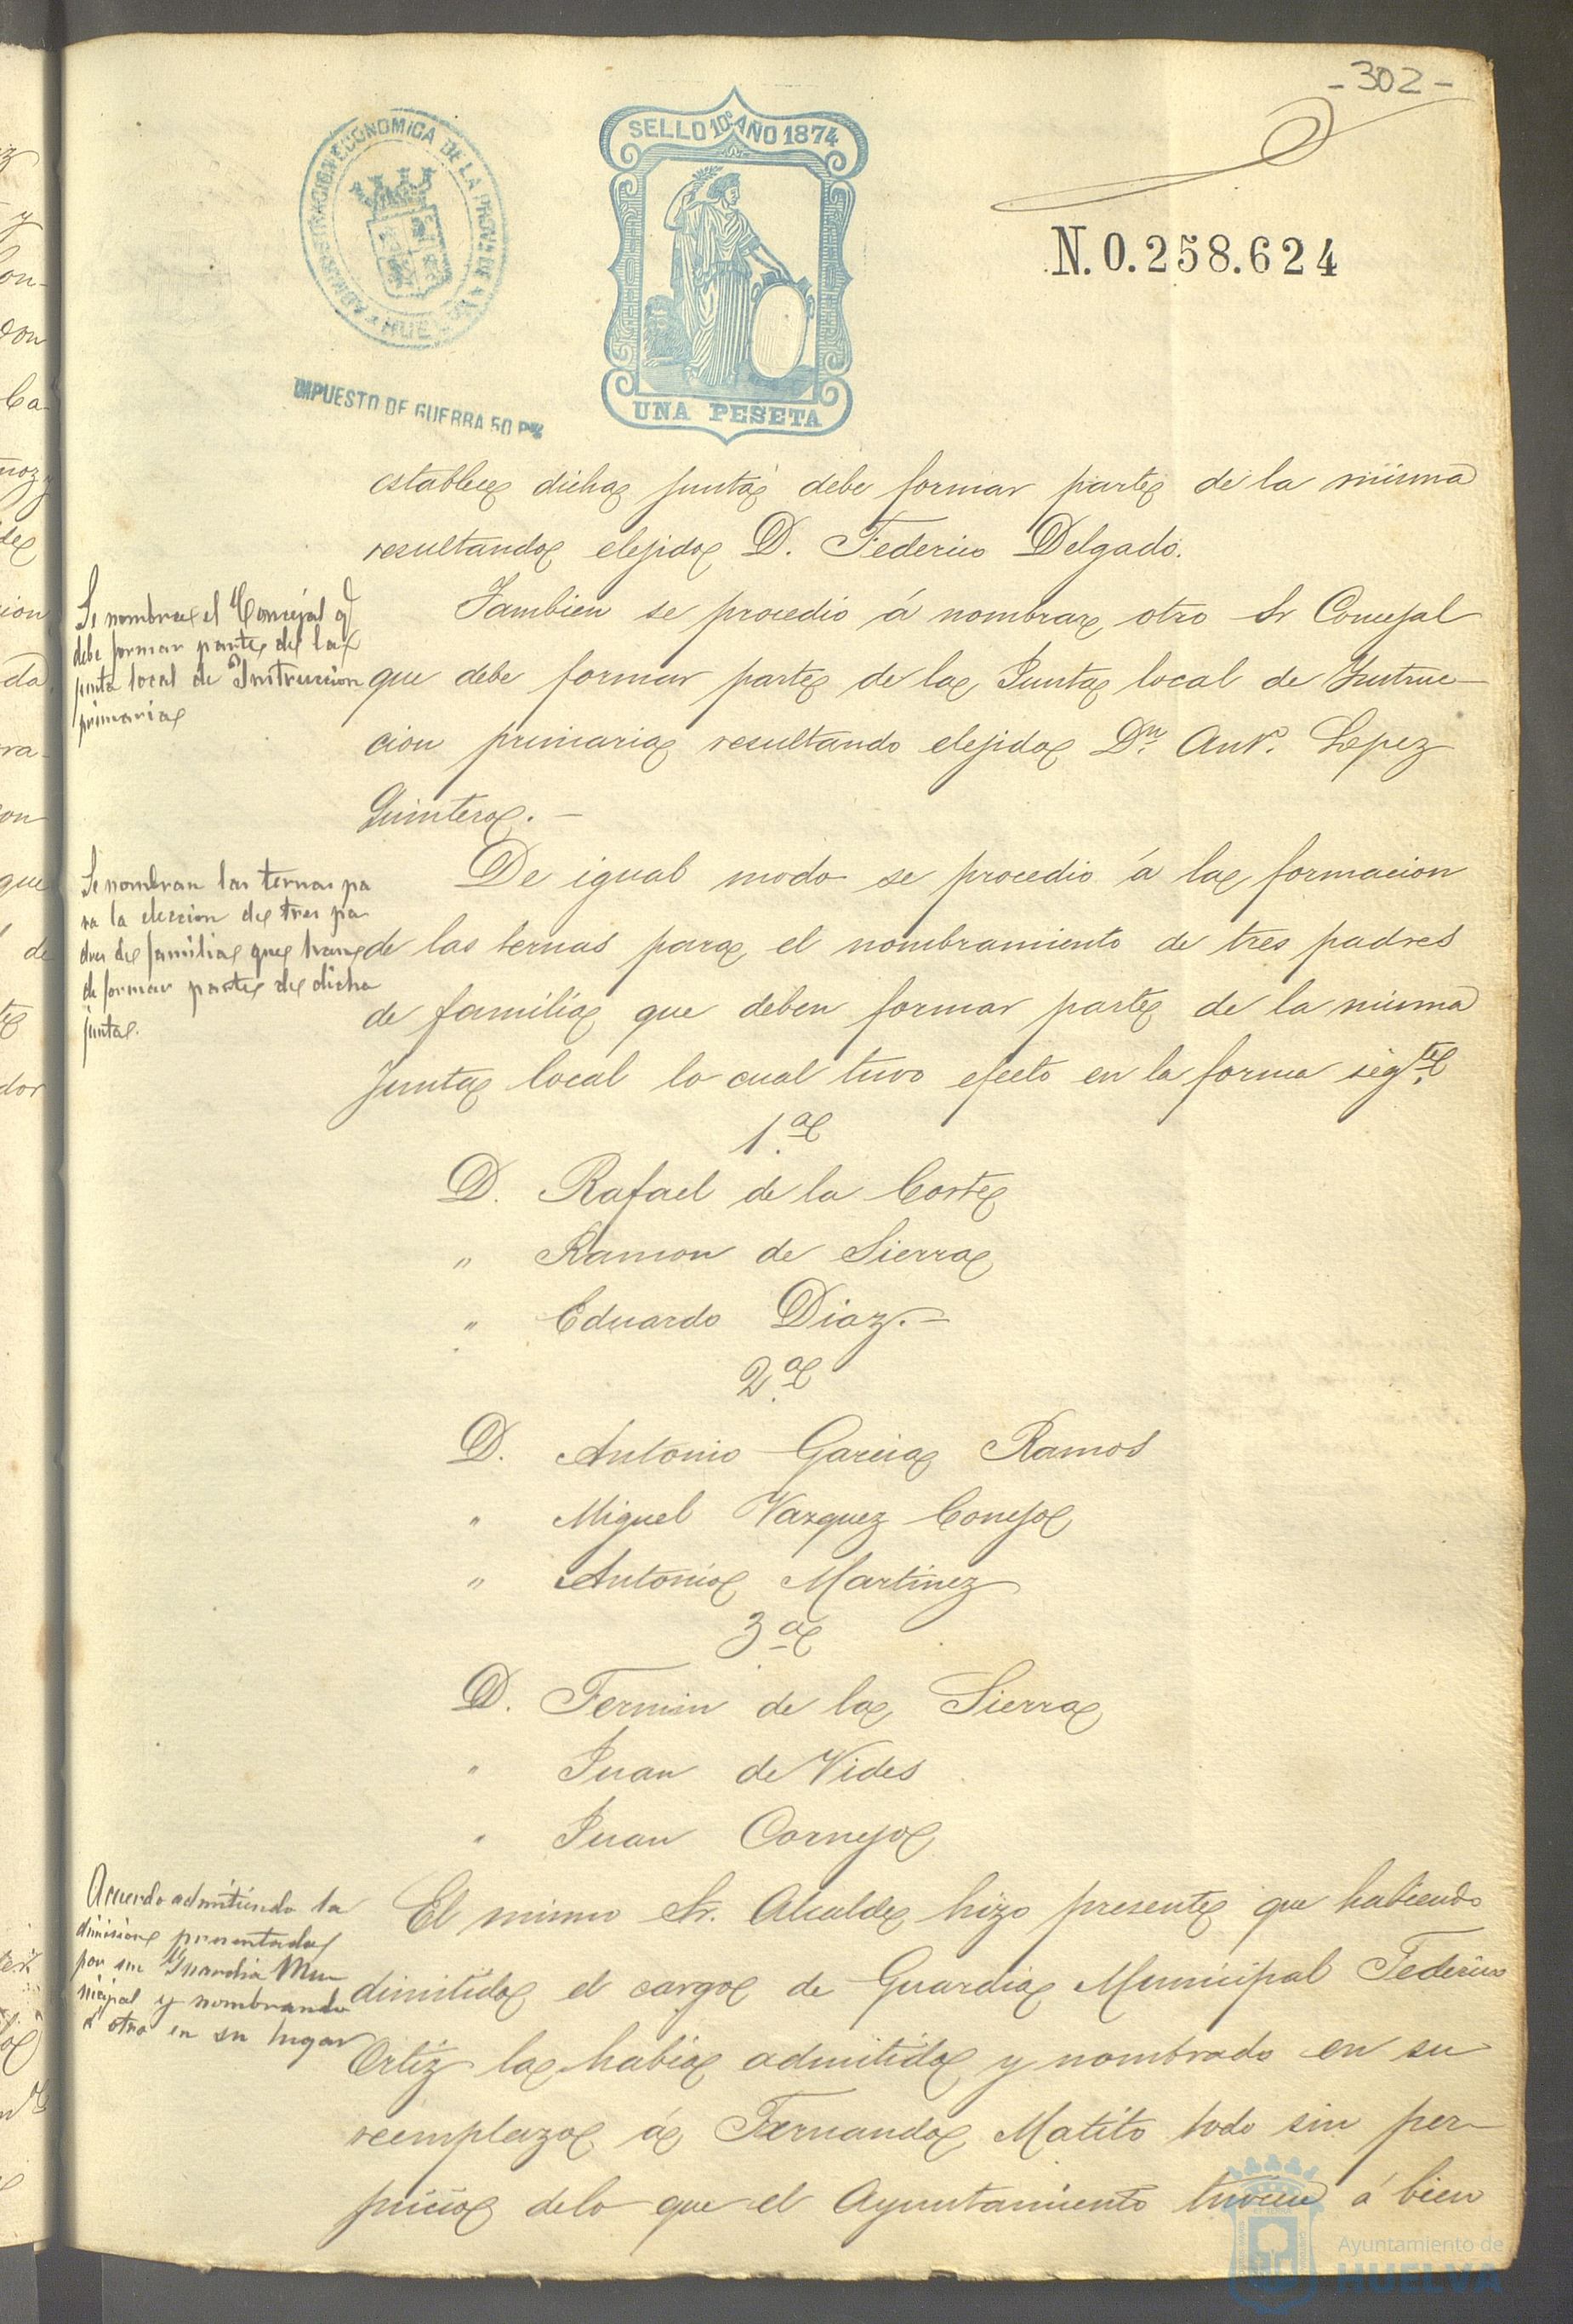 - 302 -
ADMINISTRACION ECONOMICA DE LA PROV. DE HUELVA
SELLO 10º AÑO 1874
UNA PESETA
N. 0.258.624
IMPUESTO DE GUERRA 50
establece dicha junta debe formar parte de la misma
resultando elejido D. Federico Delgado.
Se nombra el Concejal q
debe formar parte de la
junta local de Instruccion
primaria
Tambien se procedió á nombrar otro Sr Concejal
que debe formar parte de la Junta local de Instruc-
cion primaria resultando elejido Dn. Antº. Lopez
Quintero. -
Se nombran las ternas pa
ra la eleccion de tres pa
dres de familia que han
de formar parte de dicha
junta.
De igual modo se procedió á la formacion
de las ternas para el nombramiento de tres padres
de familia que deben formar parte de la misma
Junta local lo cual tuvo efecto en la forma sigte.
1.ª
D. Rafael de la Corte
" Ramon de Sierra
" Eduardo Diaz. -
2.ª
D. Antonio Garcia Ramos
" Miguel Vazquez Conejo
" Antonio Martinez
3.ª
D. Fermin de la Sierra
" Juan de Vides
" Juan Cornejo
Acuerdo admitiendo la
dimision presentada
por un Guardia Mu-
nicipal y nombrando
á otro en su lugar
El mismo Sr. Alcalde hizo presente que habiendo
dimitido el cargo de Guardia Municipal Federico
Ortiz la habia admitido y nombrado en su
reemplazo á Fernando Matito todo sin per-
juicio de lo que el Ayuntamiento tuviere á bien
Ayuntamiento de
HUELVA